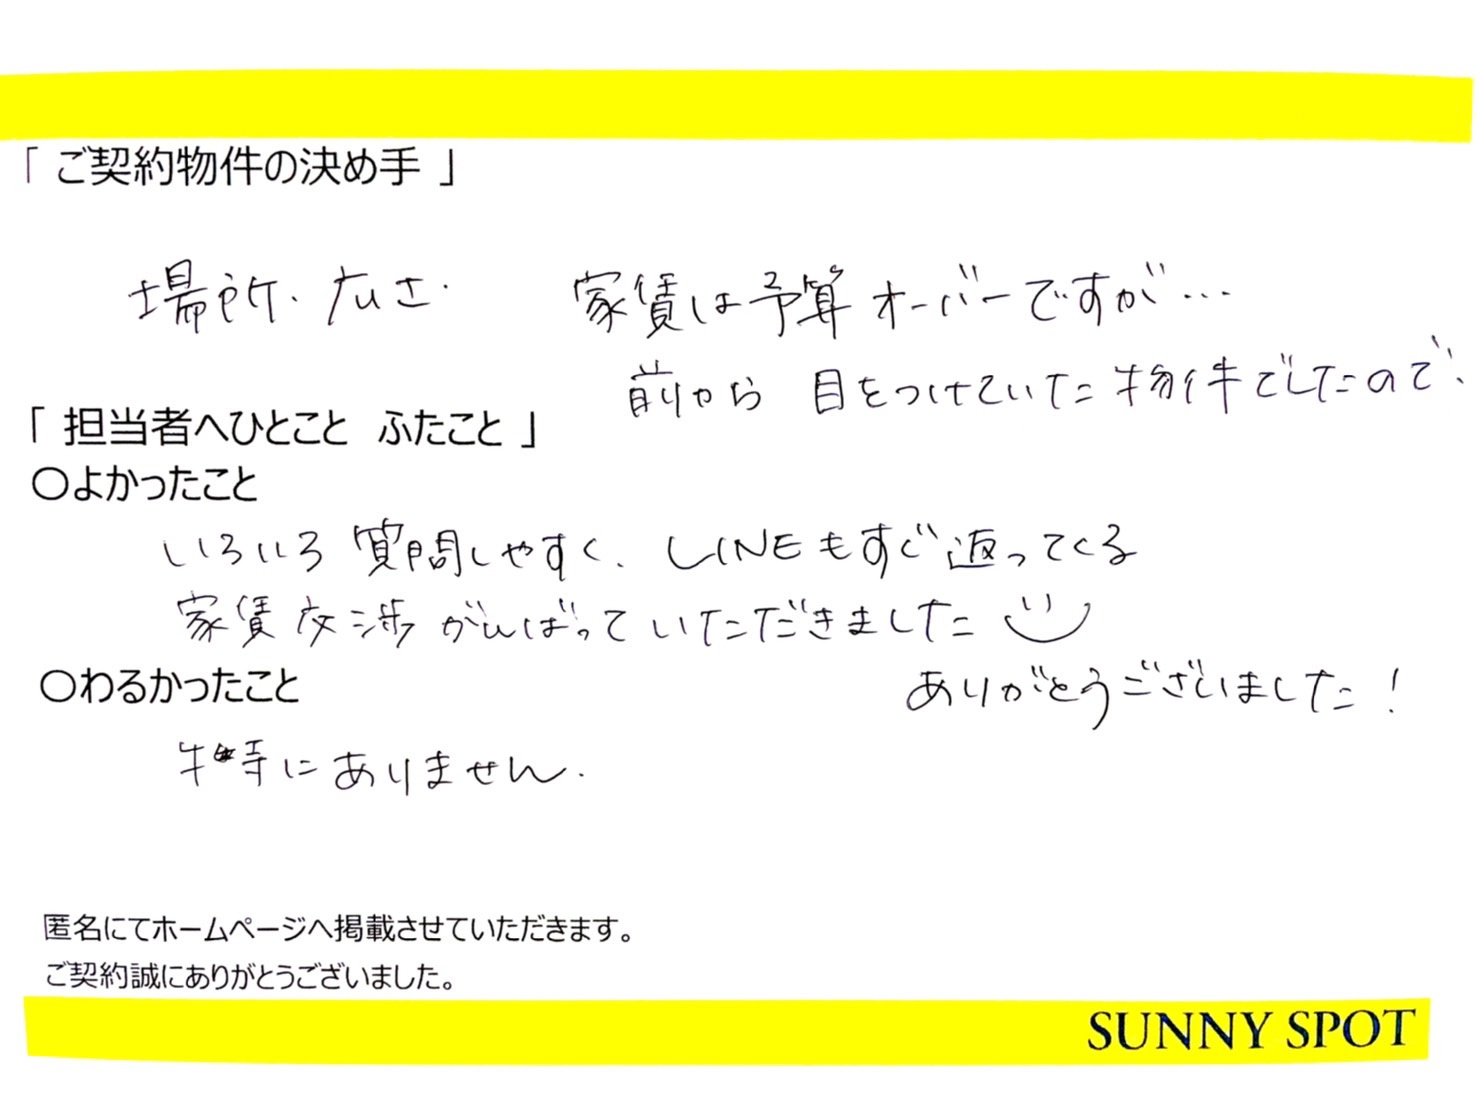 「 ご契約物件の決め手 」
場所・広さ・ 家賃は予算オーバーですが…
前から 目をつけていた物件でしたので、
「 担当者へひとこと ふたこと 」
〇よかったこと
いろいろ 質問しやすく、LINEもすぐ返ってくる
家賃交渉がんばっていただきました
〇わるかったこと
ありがとうございました！
特にありません.
匿名にてホームページへ掲載させていただきます。
ご契約誠にありがとうございました。
SUNNY SPOT